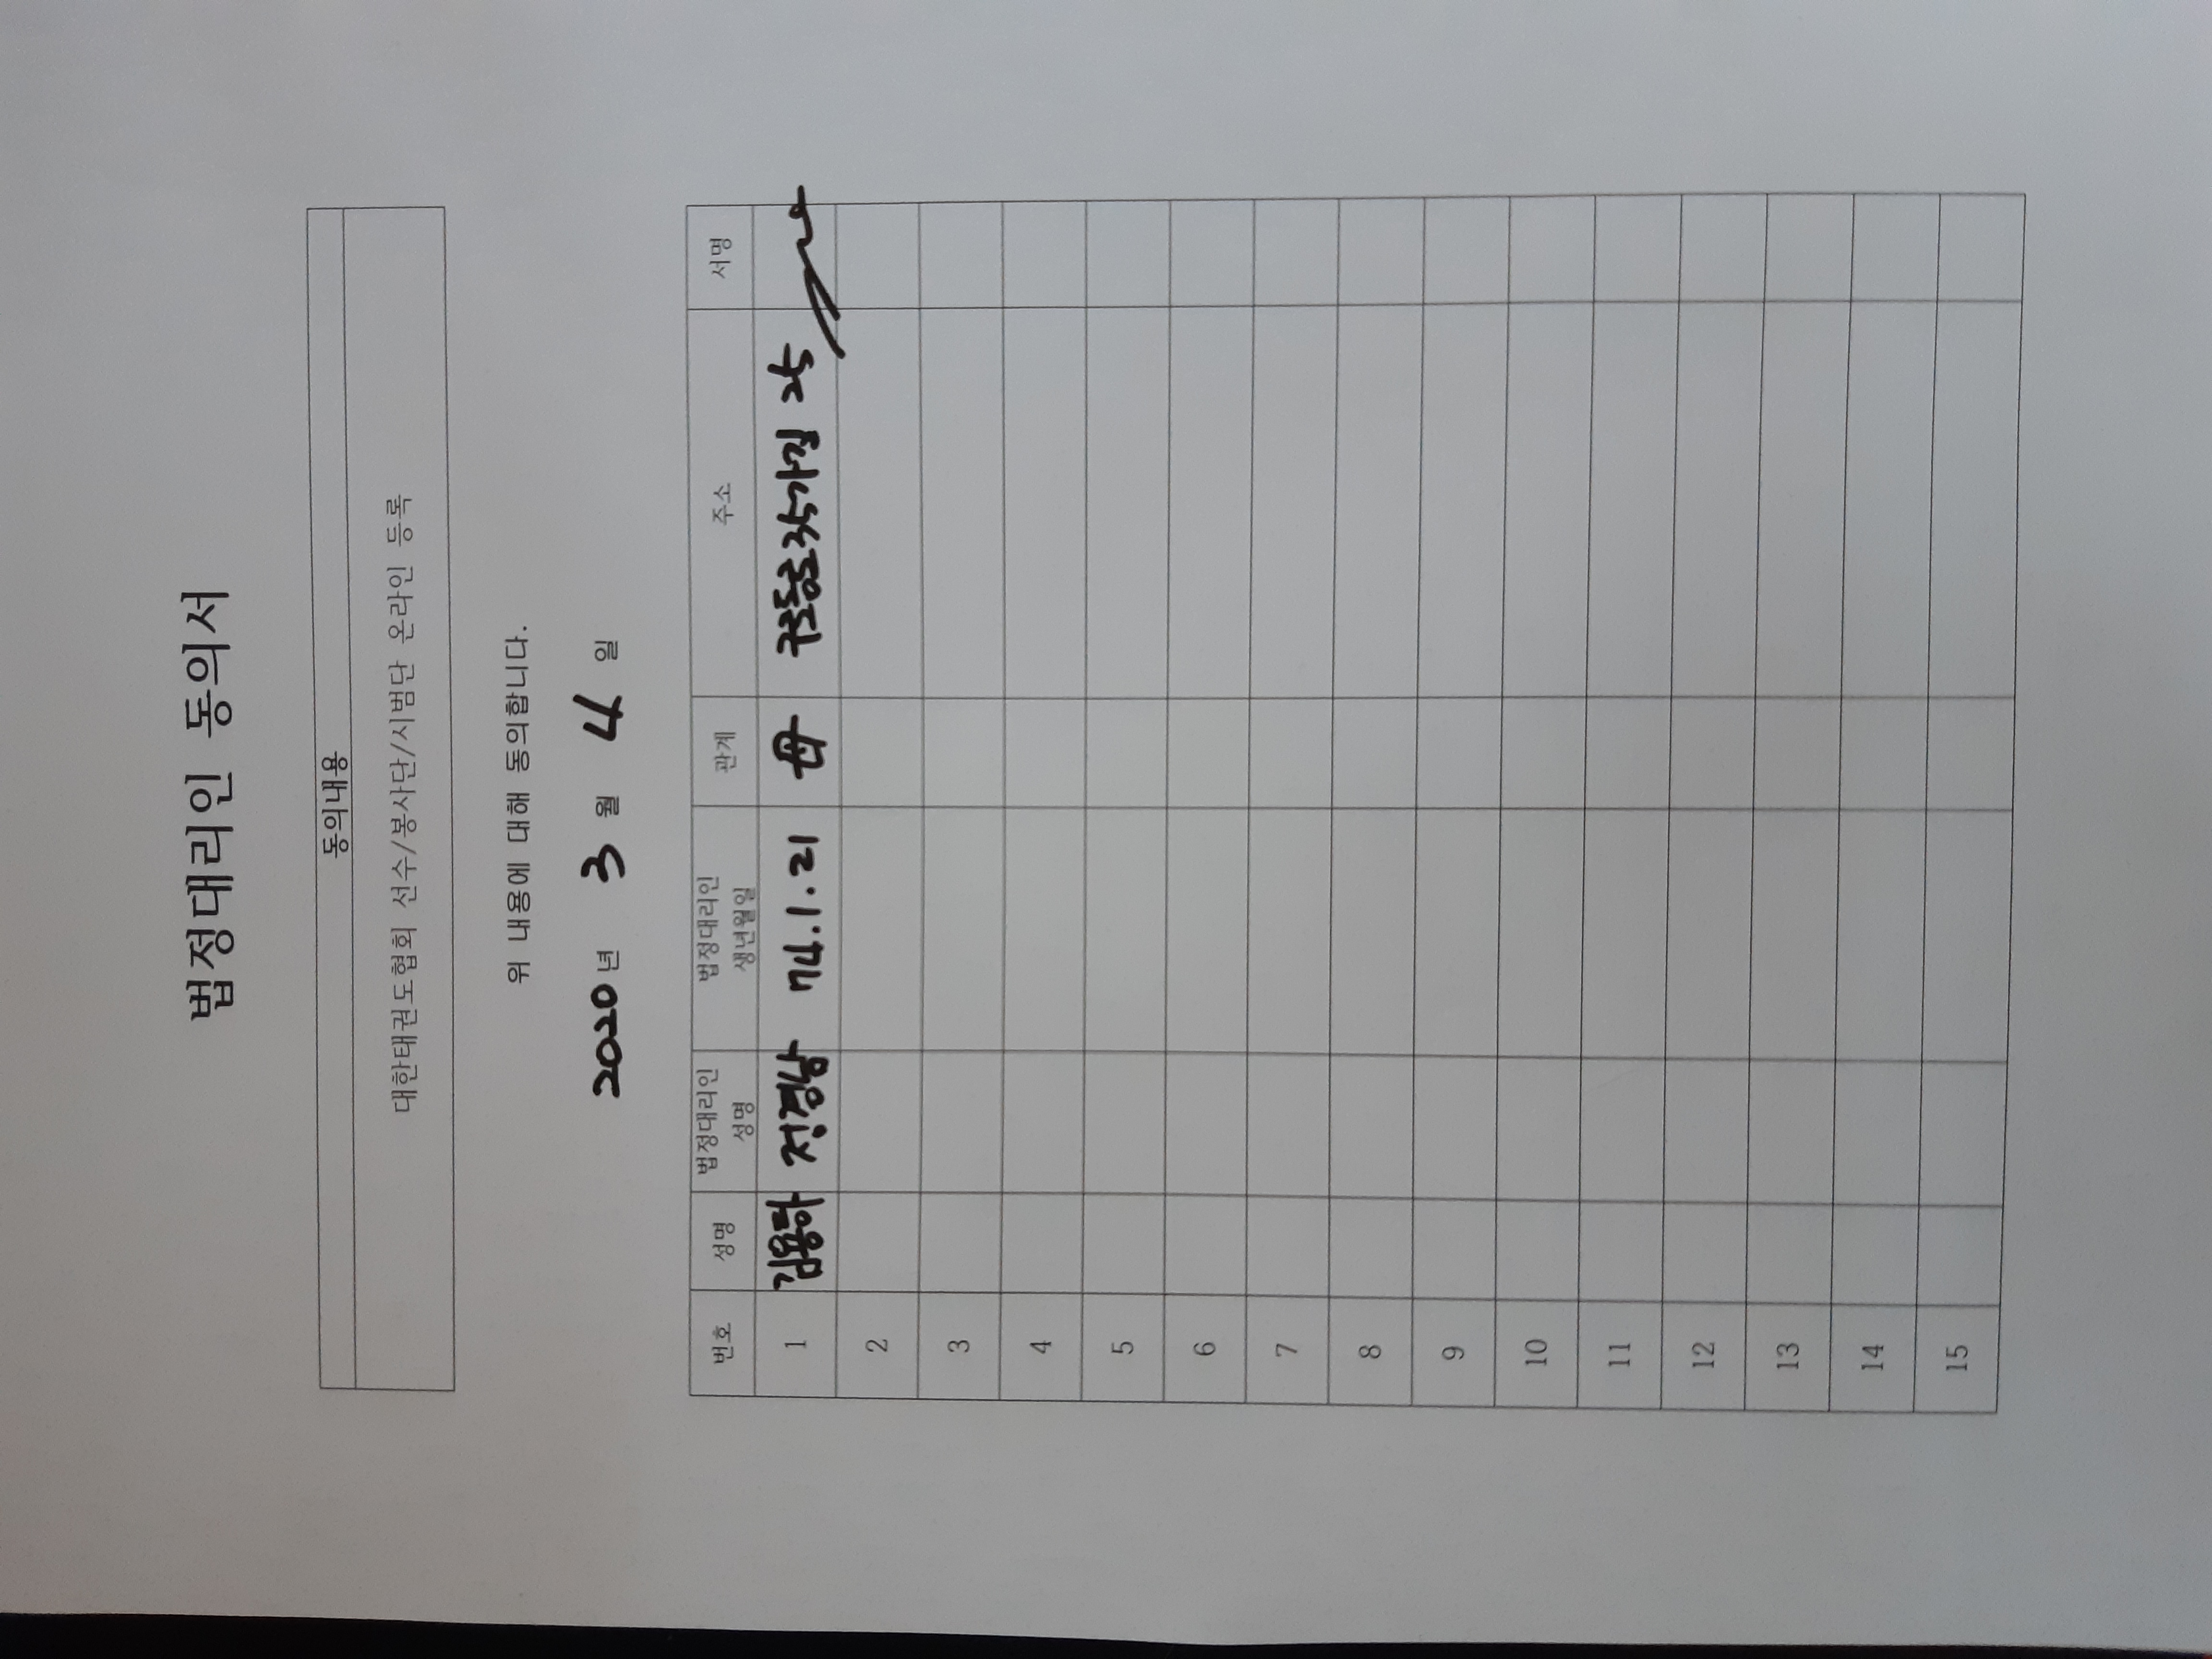 법정대리인 동의서
동의내용
대한태권도협회 선수/봉사단/시범단 온라인 등록
위 내용에 대해 동의합니다.
2020년 3월 4일
번호 성명 법정대리인 성명 법정대리인 생년월일 관계 주소 서명
1 김용하 74.1.21 母 25
2
3
4
5
6
7
8
9
10
11
12
13
14
15